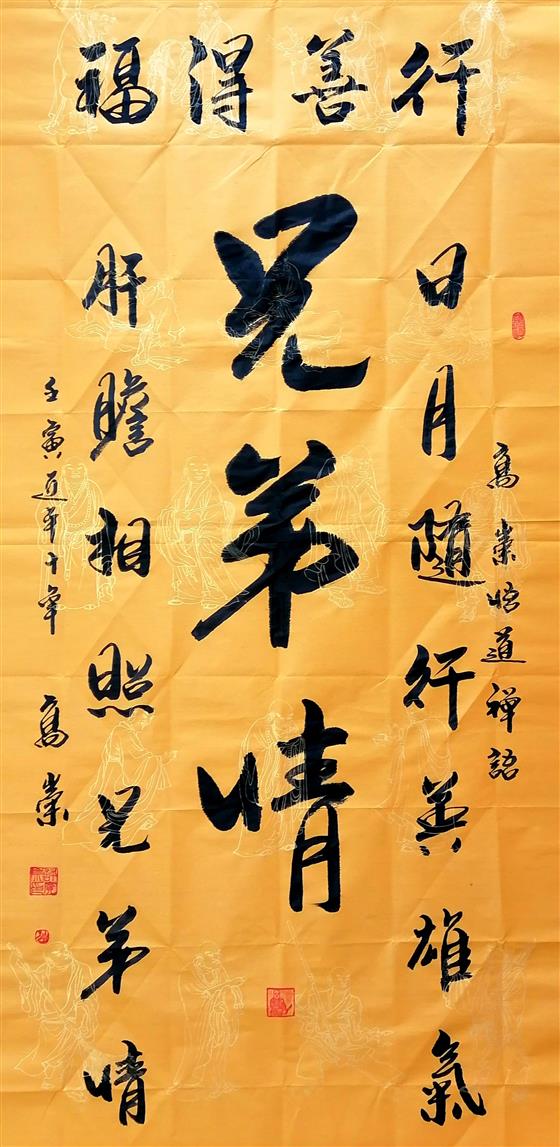 行善得福
高崇悟道禪語
日月隨行英雄氣
兄弟情
肝膽相照兄弟情
壬寅
高崇